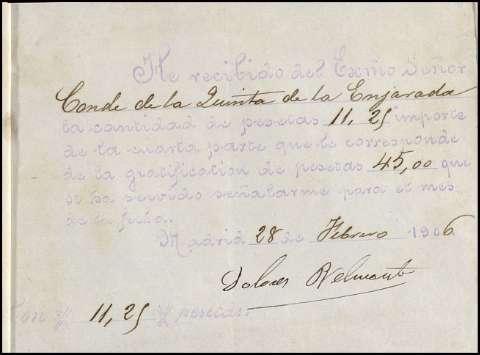 He recibido del Exmo Señor
Conde de la Quinta de la Enjarada
la cantidad de pesetas 11,25 importe
de la cuarta parte que le corresponde
de la gratification de pesetas 45,00 que
se ha servido señalarme para el mes
de la fecha..
Madrid 28 de Febrero 1906
Dolores Belmonte
Son 11,25 pesetas.